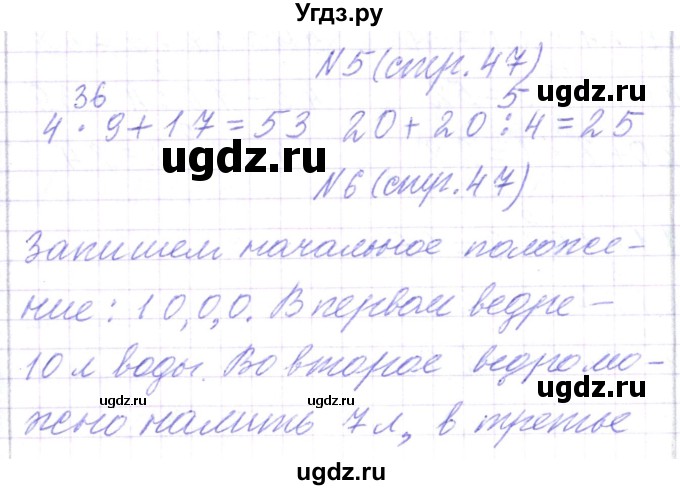 Угдз.ру
N5 (стр. 47)
36 5
4 · 9 + 17 = 53 20 + 20 : 4 = 25
N6 (стр. 47)
Запишем начальное положе-
ние: 10, 0, 0. В первом ведре -
10 л воды. Во второе ведро мо-
жно налить 7 л, в третье
ugdz.ru
ugdz.ru
ugdz.ru
ugdz.ru
ugdz.ru
ugdz.ru
ugdz.ru